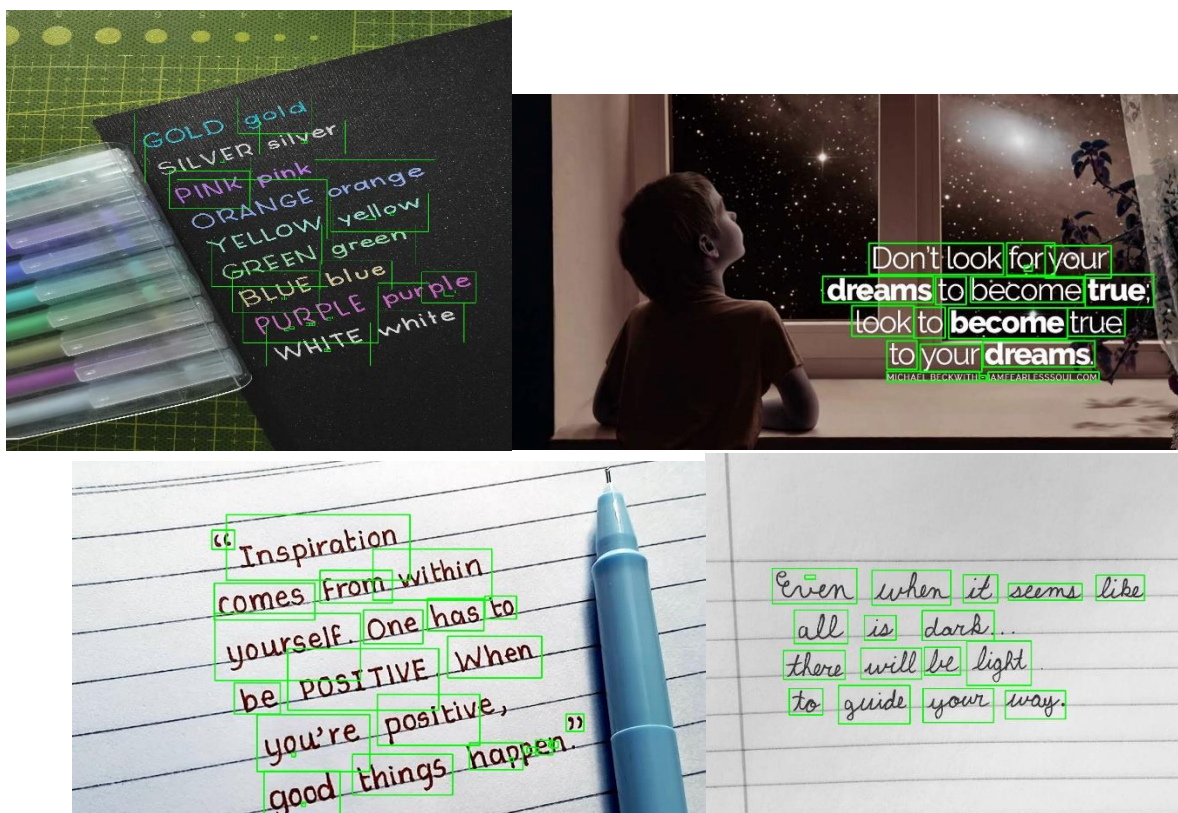 GOLD gold
SILVER silver
PINK pink
ORANGE orange
YELLOW yellow
GREEN green
BLUE blue
PURPLE purple
WHITE white
Don't look for your
dreams to become true;
look to become true
to your dreams.
MICHAEL BECKWITH - IAMFEARLESSSOUL.COM
“Inspiration
comes from within
yourself. One has to
be POSITIVE. When
you're positive,
good things happen.”
Even when it seems like
all is dark...
there will be light
to guide your way.